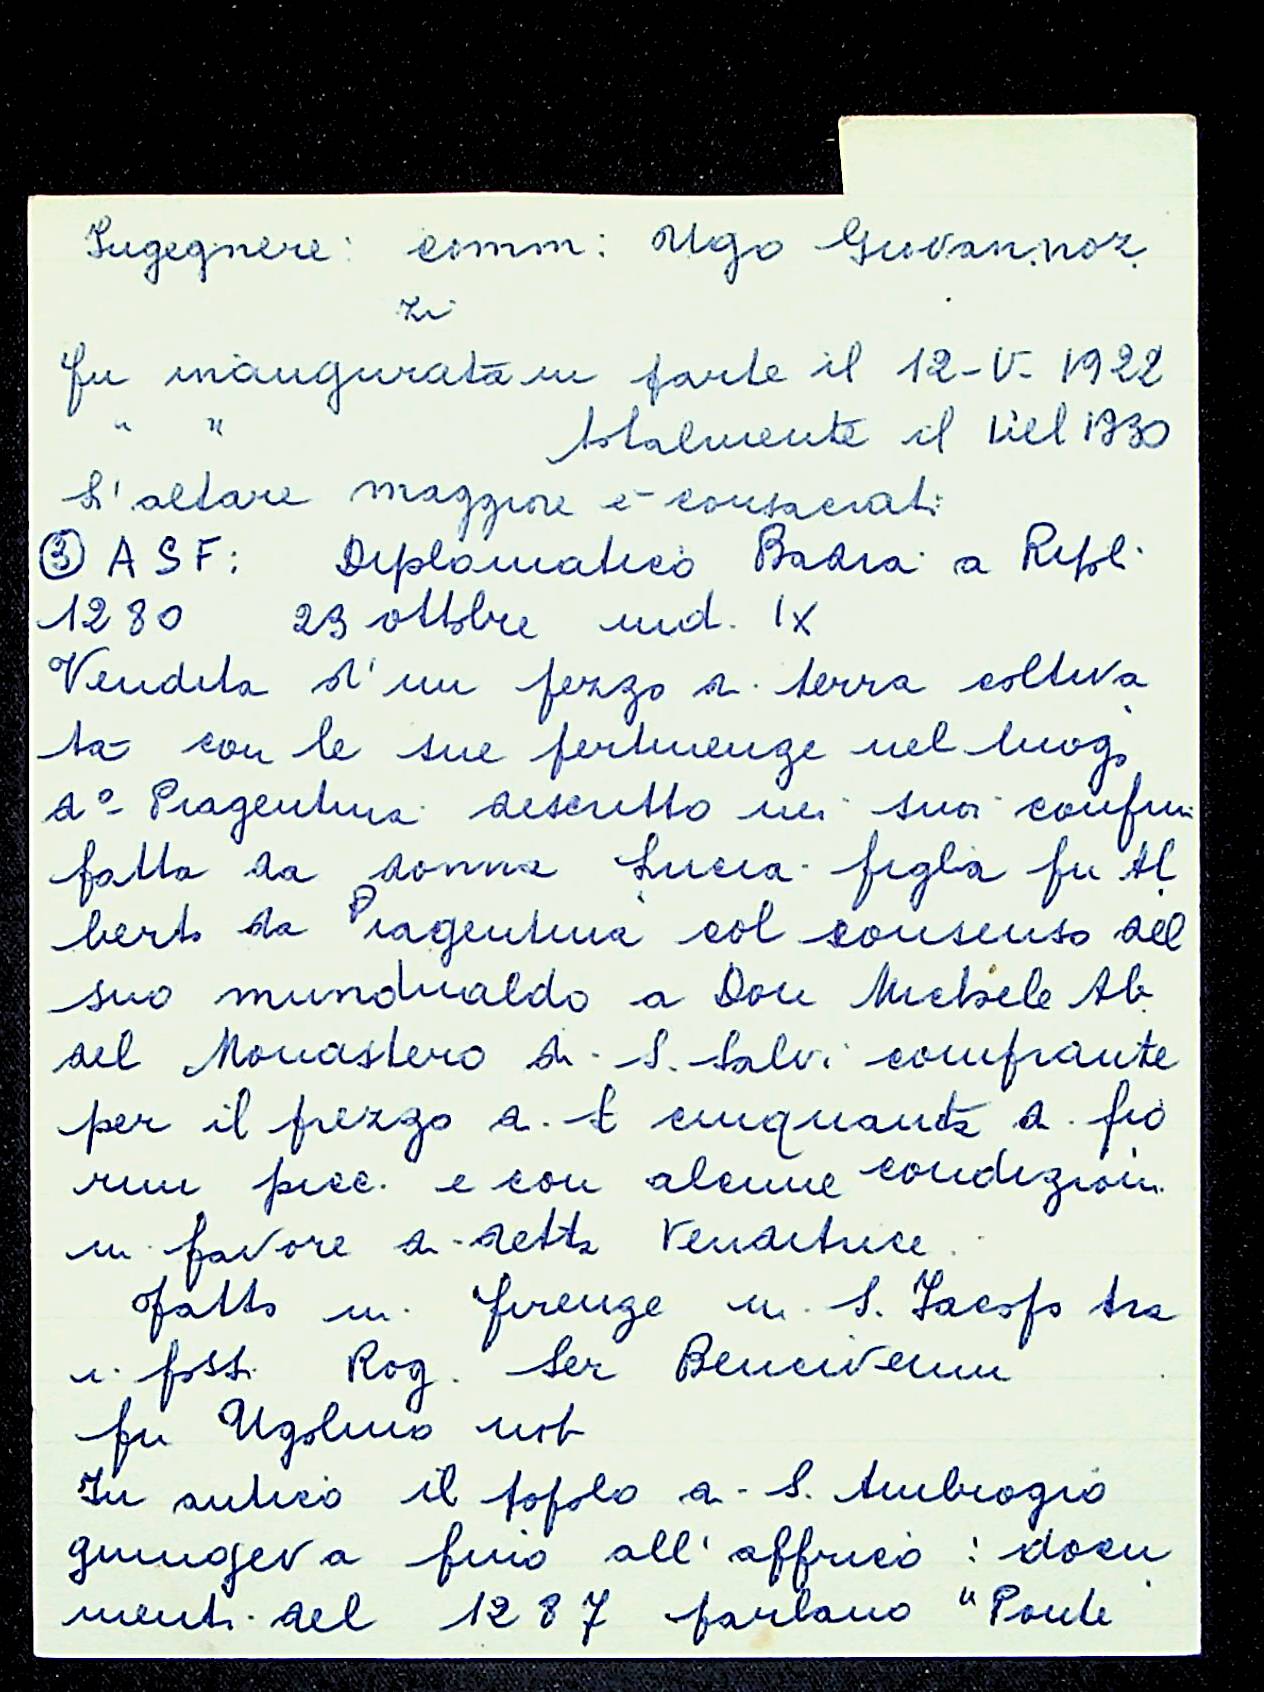 Ingegnere: comm: Ugo Giovannoz
zi
fu inaugurata in parte il 12-V- 1922
" " totalmente il 1930
L'altare maggiore è consacrati
③ A S F: Diplomatico Badia a Ripoli
1280 23 ottobre ind. IX
Vendita d'un pezzo di terra coltiva
ta con le sue pertinenze nel luogo
do Piagentina descritto nei suoi confini
fatta da donna Lucia figlia fu Al
berto da Piagentina col consenso del
suo mundualdo a Don Michele Ab
del Monastero di S. Salvi comprante
per il prezzo di £ cinquanta di fio
rini picc. e con alcune condizioni
in favore di detta venditrice.
fatto in firenze in S. Jacopo tra
i fossi Rog. Ser Bencivenni
fu Ugolino not
In antico il popolo di S. Ambrogio
giungeva fino all'affrico: docu
menti del 1287 parlano "Ponte